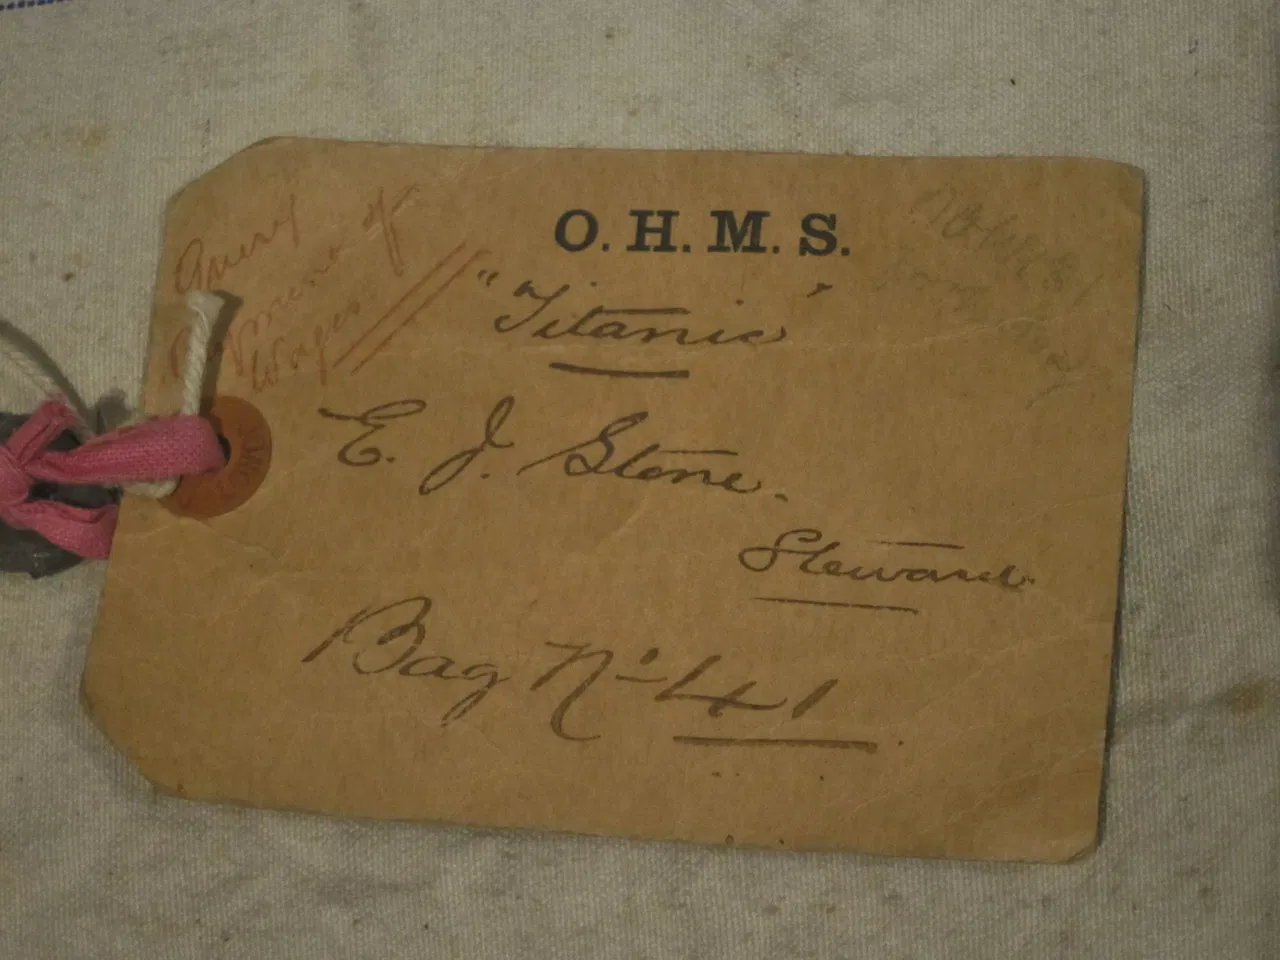 O. H. M. S.
Query
payment of
Wages
"Titanic"
E. J. Stone.
Steward.
Bag Nº 41.